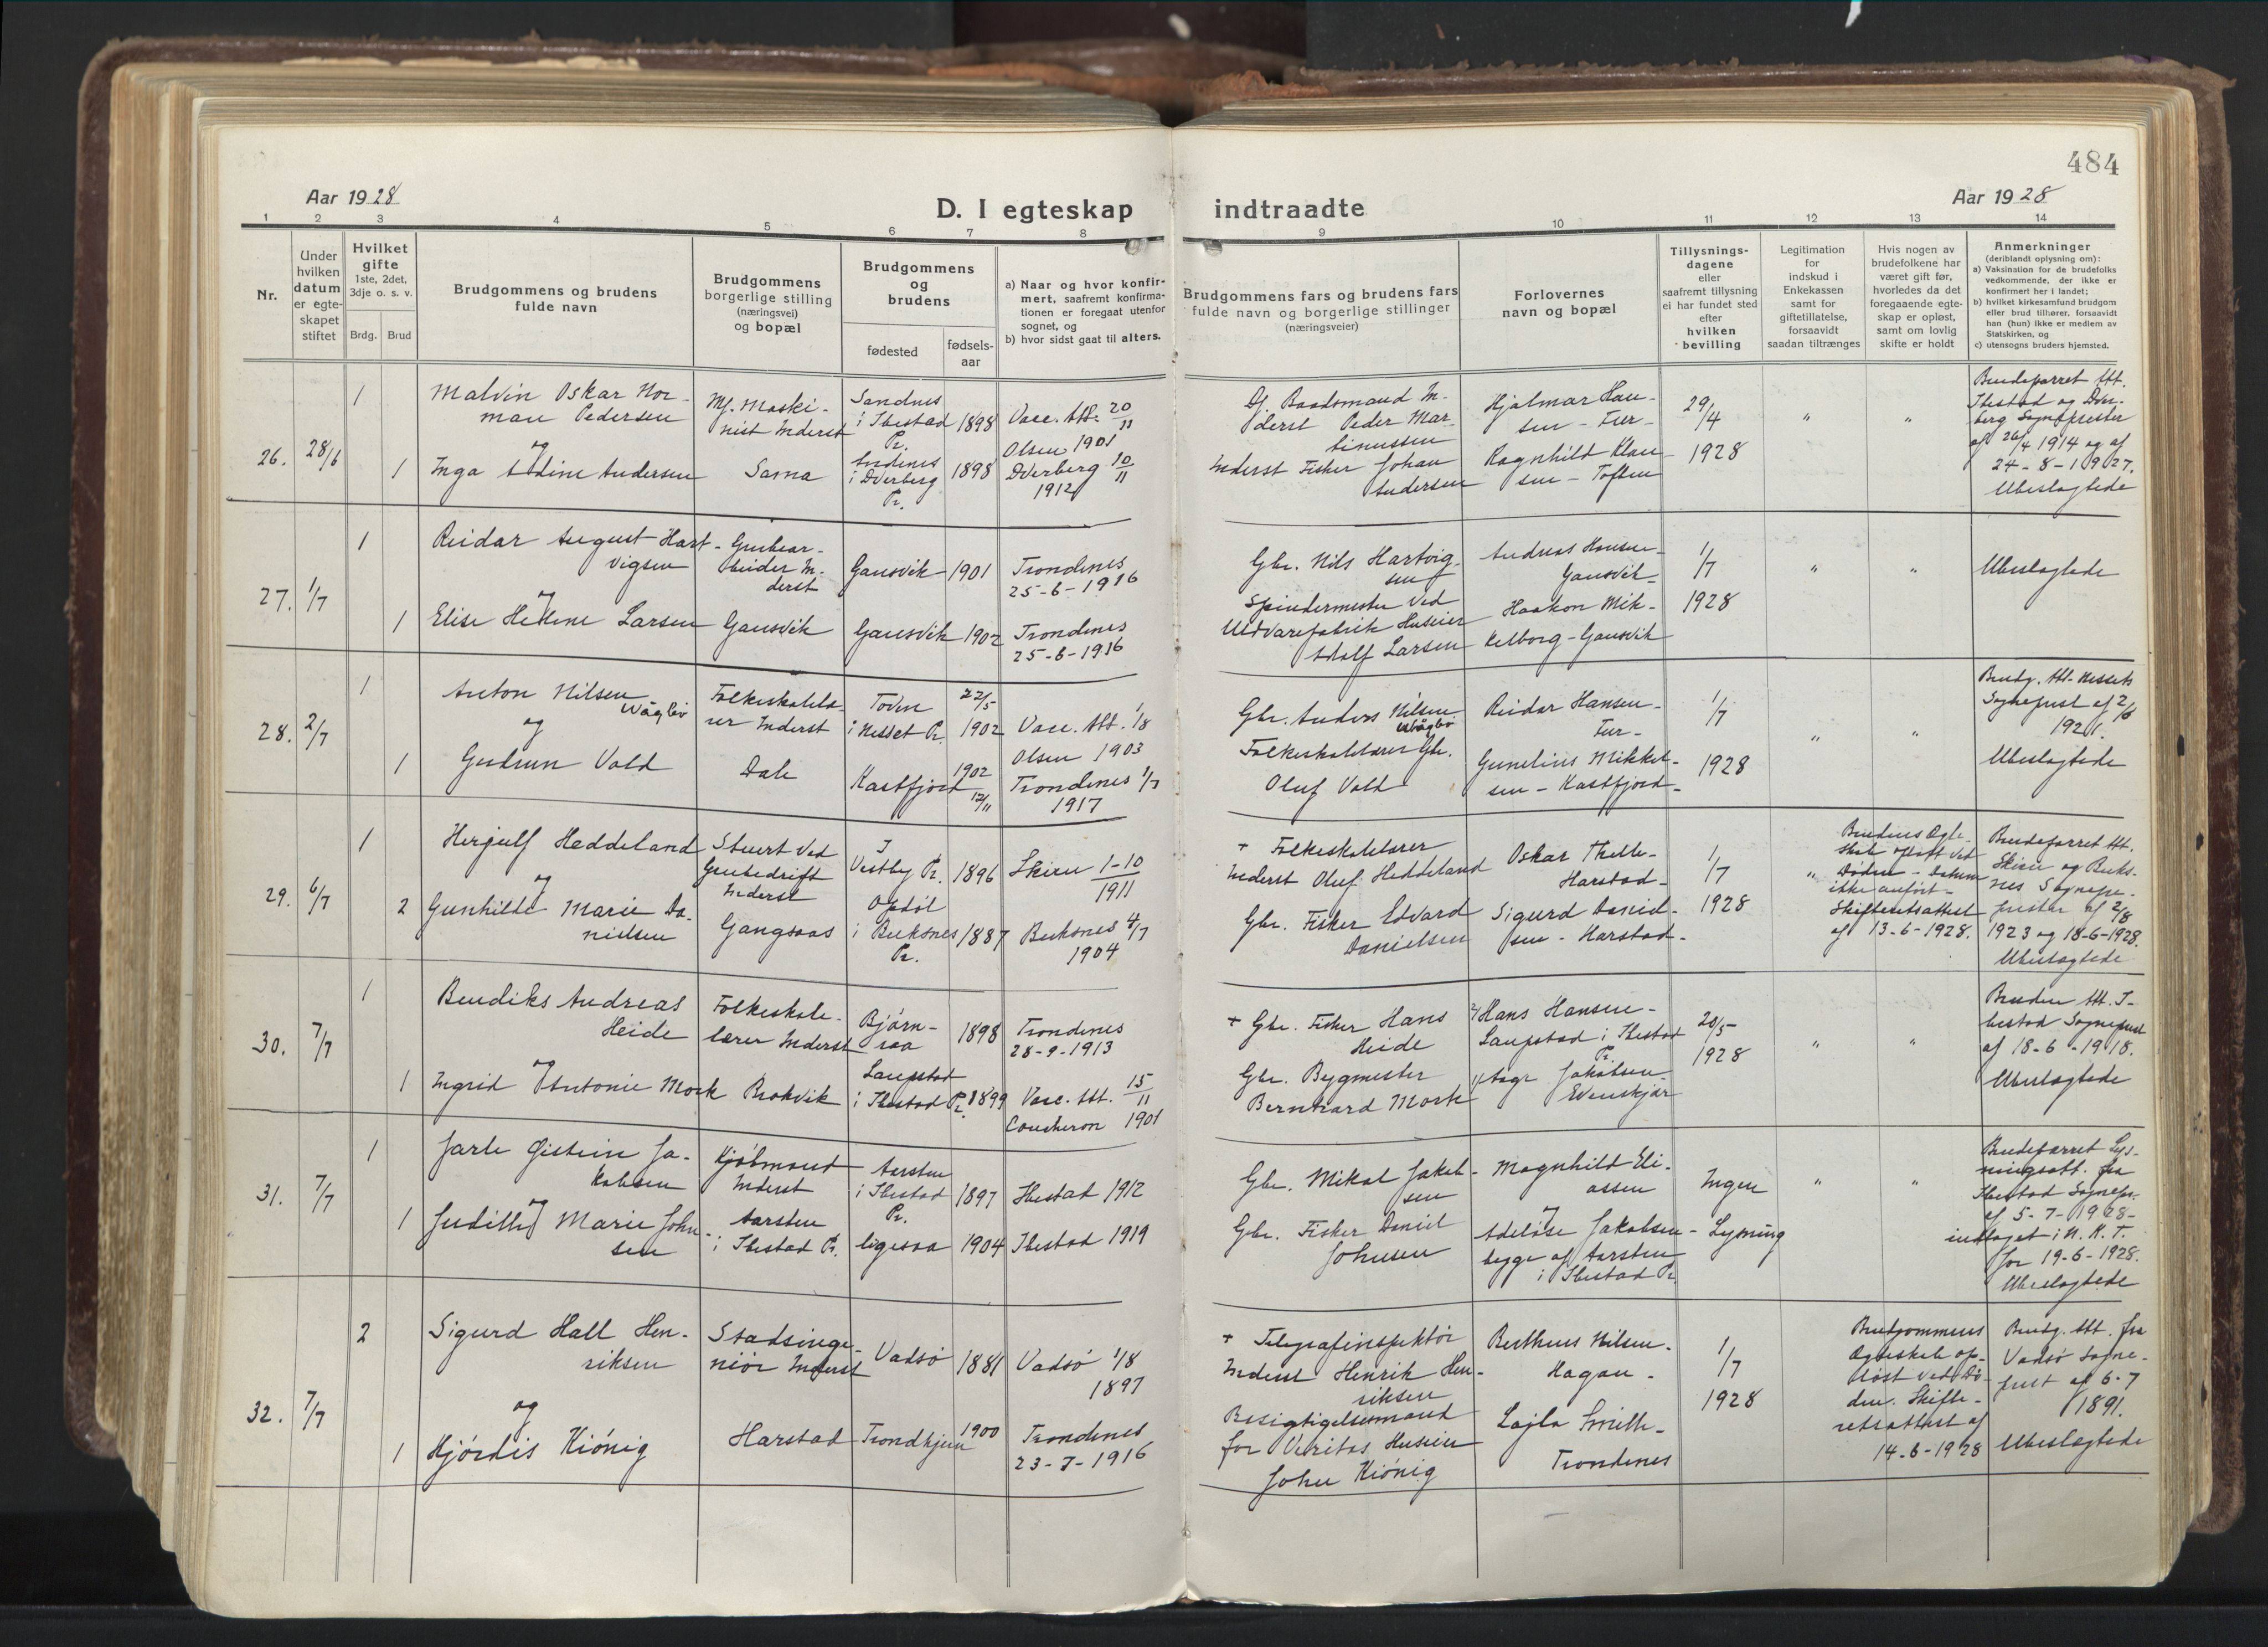 484
Aar 1928
Aar 1928
D. I egteskap
indtraadte
1 2 3 4 5 6 7 8
9 10 11 12 13 14
Nr.
Under
hvilken
datum
er egte-
skapet
stiftet
Hvilket
gifte
1ste, 2det,
3dje o. s. v.
Brdg. Brud
Brudgommens og brudens
fulde navn
Brudgommens
borgerlige stilling
(næringsvei)
og bopæl
Brudgommens
og
brudens
fødested
fødsels-
aar
a) Naar og hvor konfir-
mert, saafremt konfirma-
tionen er foregaat utenfor
sognet, og
b) hvor sidst gaat til alters.
Brudgommens fars og brudens fars
fulde navn og borgerlige stillinger
(næringsveier)
Forlovernes
navn og bopæl
Tillysnings-
dagene
eller
saafremt tillysning
ei har fundet sted
efter
hvilken
bevilling
Legitimation
for
indskud i
Enkekassen
samt for
giftetillatelse,
forsaavidt
saadan tiltrænges
Hvis nogen av
brudefolkene har
været gift før,
hvorledes da det
foregaaende egte-
skap er opløst,
samt om lovlig
skifte er holdt
Anmerkninger
(deriblandt oplysning om):
a) Vaksination for de brudefolks
vedkommende, der ikke er
konfirmert her i landet;
b) hvilket kirkesamfund brudgom
eller brud tilhører, forsaavidt
han (hun) ikke er medlem av
Statskirken, og
c) utensogns bruders hjemsted.
26. 28/6
1
1
Malvin Oskar Nor-
man Pedersen
og
Inga Adine Andersen
Mf. Maski-
nist Inderst
Sama
Sandnes
i Ibestad
Pr.
1898
Andenes
i Dverberg
Pr.
1898
Vacc. Att. 20/11
Olsen 1901
Dverberg 10/11
1912
Baadsmand In-
derst Peder Mar-
tinussen
Inderst Fisker Johan
Andersen
Hjalmar Han-
sen -
Ragnhild Klau
sen - Toften
29/4
1928
"
"
Brudeparret Att.
Ibestad og Dver-
berg Sogneprester
af 26/4 1914 og af
24-8-1927.
Ubeslegtede
27. 1/7
1
1
Reidar August Hart-
vigsen
og
Elise Helene Larsen
Grubear-
beider In-
derst
Gansvik
Gausvik 1901
Gausvik 1902
Trondenes
25-6-1916
Trondenes
25-6-1916
Gbr. Nils Hartvig-
sen
Spindermester ved
Uldvarefabrik Huseier
Adolf Larsen
Andreas Hansen-
Gausvik-
Haakon Mik-
kelborg - Gausvik
1/7
1928
"
"
Ubeslegtede
28. 2/7
1
1
Anton Nilsen
Vågbø
og
Gudrun Vold
Folkeskolelæ-
rer Inderst
Dale
Toven
i Nesset Pr.
22/5
1902
Kastfjord
1902
12/11
Vacc. Att. 1/8
Olsen 1903
Trondenes 1/7
1917
Gbr. Anders Nilsen
Vågbø
Folkeskolelærer Gbr.
Oluf Vold
Reidar Hansen-
Gunelius Mikkel-
sen - Kastfjord-
1/7
1928
"
"
Brudg. Att. Nessets
Sogneprest af 2/6
192.
Ubeslegtede
29. 6/7
1
2
Hergulf Heddeland
og
Gunhilde Marie Da-
nielsen
Stuert ved
Grubedrift
Inderst
Gangsaas
I
Vestby Pr. 1896
Opdöl
i Buksnes 1887
Pr.
Skien 1-10
1911
Buksnes 4/7
1904
+ Folkeskolelærer
Inderst Oluf Heddeland
Gbr. Fisker Edvard
Danielsen
Oskar Thelle-
Harstad-
Sigurd Daniel-
sen - Harstad-
1/7
1928
"
Brudens Ægte-
skab opløst ved
Døden - Datum
ikke anført -
Skifteretsattest
af 13-6-1928.
Brudeparret Att.
Skien og Buks-
nes Sognepr-
prester af 2/8
1923 og 18-6-1928.
Ubeslegtede
30. 7/7
1
1
Bendiks Andreas
Heide
og
Ingrid Antonie Mork
Folkeskole-
lærer Inderst
Brokvik
Bjørn-
raa
1898
Laupstad
i Ibestad Pr. 1899
Trondenes
28-9-1913
Vacc. Att. 15/11
Coucheron 1901
+ Gbr. Fisker Hans
Heide
Gbr. Bygmester
Berntzard Mork
Hans Hansen-
Laupstad i Ibestad
Pr.
Aage Jakobsen
Evenskjær
20/5-
1928
"
"
Bruden Att. I-
bestad Sogneprest
af 18-6-1918.
Ubeslegtede
31. 7/7
1
1
Jarle Øistein Ja-
kobsen
og
Judith Marie John-
sen
Kjøbmand
Inderst
Aarsten
i Ibestad Pr.
Aarsten
i Ibestad 1897
Pr.
ligesaa 1904
Ibestad 1912
Ibestad 1919
Gbr. Mikal Jakob-
sen
Gbr. Fisker Daniel
Johnsen
Magnhild Eli-
assen
og
Adeløse Jakobsen -
begge af Aarsten
i Ibestad Pr.
Ingen
Lysning
"
"
Brudeparret Lys-
ningsatt. fra
Ibestad Sognepr.
af 5-7-1928-
indtaget i N. K. T.
for 19-6-1928.
Ubeslegtede
32. 7/7
2
1
Sigurd Hall Hen-
riksen
og
Hjördis Kiönig
Stadsinge-
niör Inderst
Harstad
Vadsö 1881
Trondhjem 1900
Vadsö 1/8
1897
Trondenes
23-7-1916
+ Telegrafinspektör
Inderst Henrik Hen-
riksen
Besigtigelsesmand
for Veritas Huseier
John Kiönig
Bertheus Nilsen-
Hagan -
Lajla Smith-
Trondenes
1/7
1928
Brudgommens
Ægteskab op-
løst ved Dø-
den. Skifte-
retsattest af
14-6-1928
Brudg. Att. fra
Vadsö Sogne-
prest af 6-7
1891.
Ubeslægtede